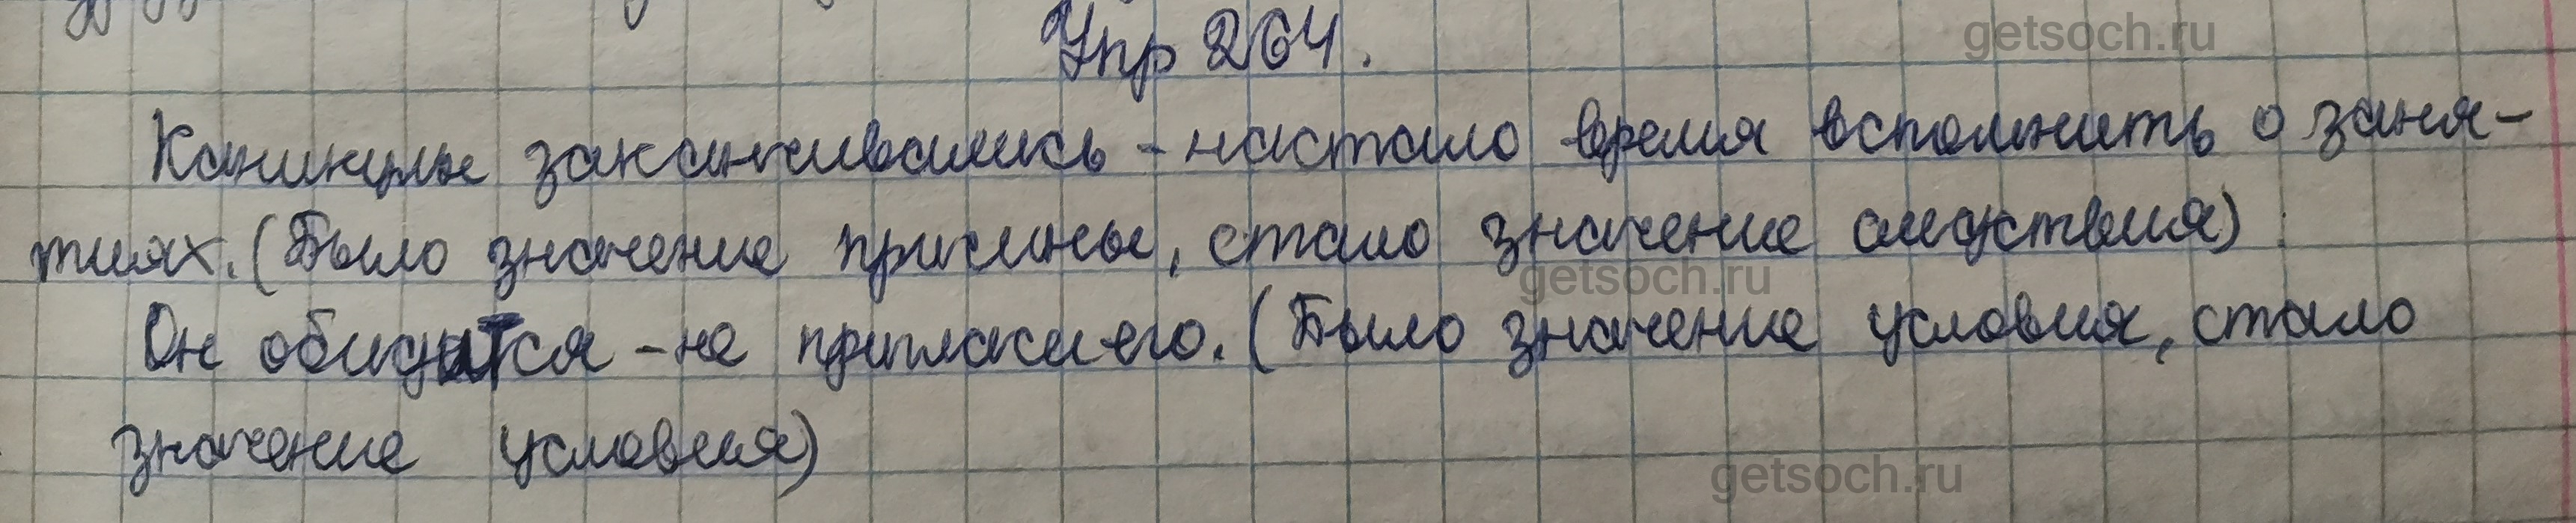 Упр 264.
Каникулы заканчивались - настало время вспомнить о заня-
тиях. (Было значение причины, стало значение следствия)
Он обидится - не пригласи его. (Было значение условия, стало
значение условия)
getsoch.ru
getsoch.ru
getsoch.ru